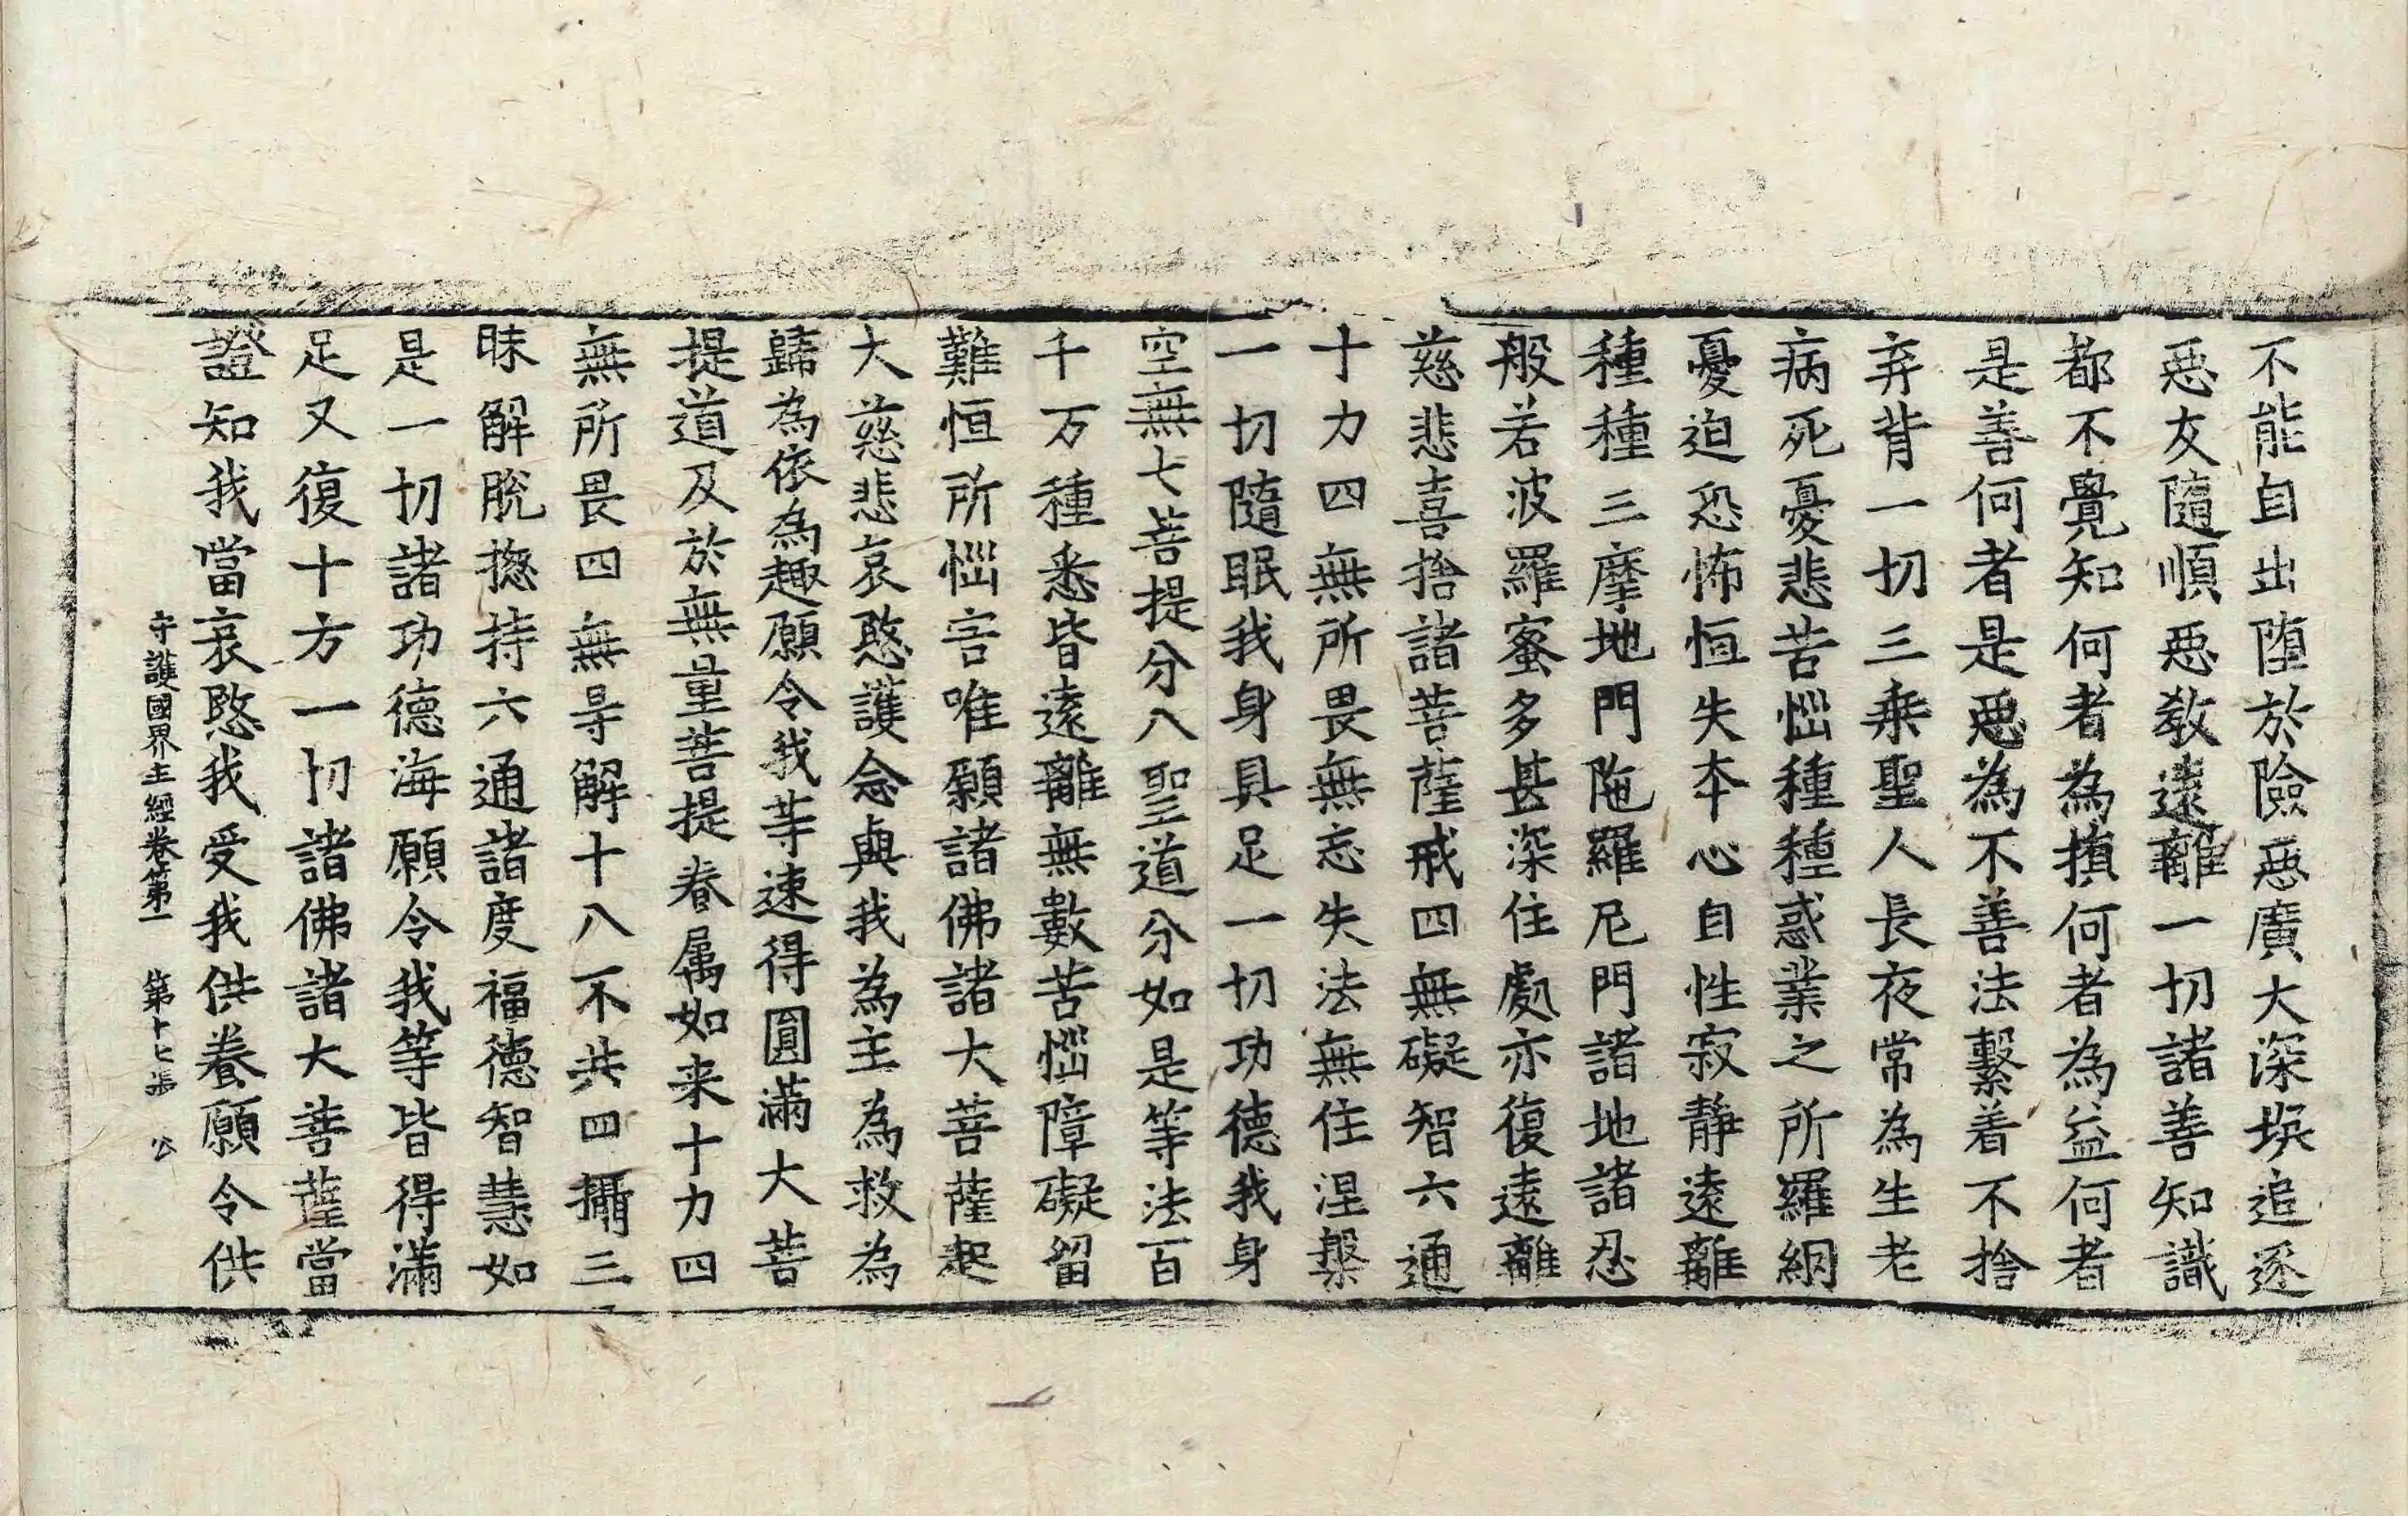 不能自出堕於險惡廣大深坑追逐
惡友隨順惡教遠離一切諸善知識
都不覺知何者為損何者為益何者
是善何者是惡為不善法繫着不捨
弃背一切三乘聖人長夜常為生老
病死憂悲苦惱種種惑業之所羅網
憂迫恐怖恒失本心自性寂靜遠離
種種三摩地門陁羅尼門諸地諸忍
般若波羅蜜多甚深住處亦復遠離
慈悲喜捨諸菩薩戒四無礙智六通
十力四無所畏無忘失法無住涅槃
一切隨眠我身具足一切功德我身
空無七菩提分八聖道分如是等法百
千万種悉皆遠離無數苦惱障礙留
難恒所惱害唯願諸佛諸大菩薩起
大慈悲哀愍護念與我為主為救為
歸為依為趣願令我等速得圓滿大菩
提道及於無量菩提眷属如来十力四
無所畏四無导解十八不共四攝三
昧解脫揔持六通諸度福德智慧如
是一切諸功德海願令我等皆得滿
足又復十方一切諸佛諸大菩薩當
證知我當哀愍我受我供養願令供
守護國界主經卷第一 第十七張 公